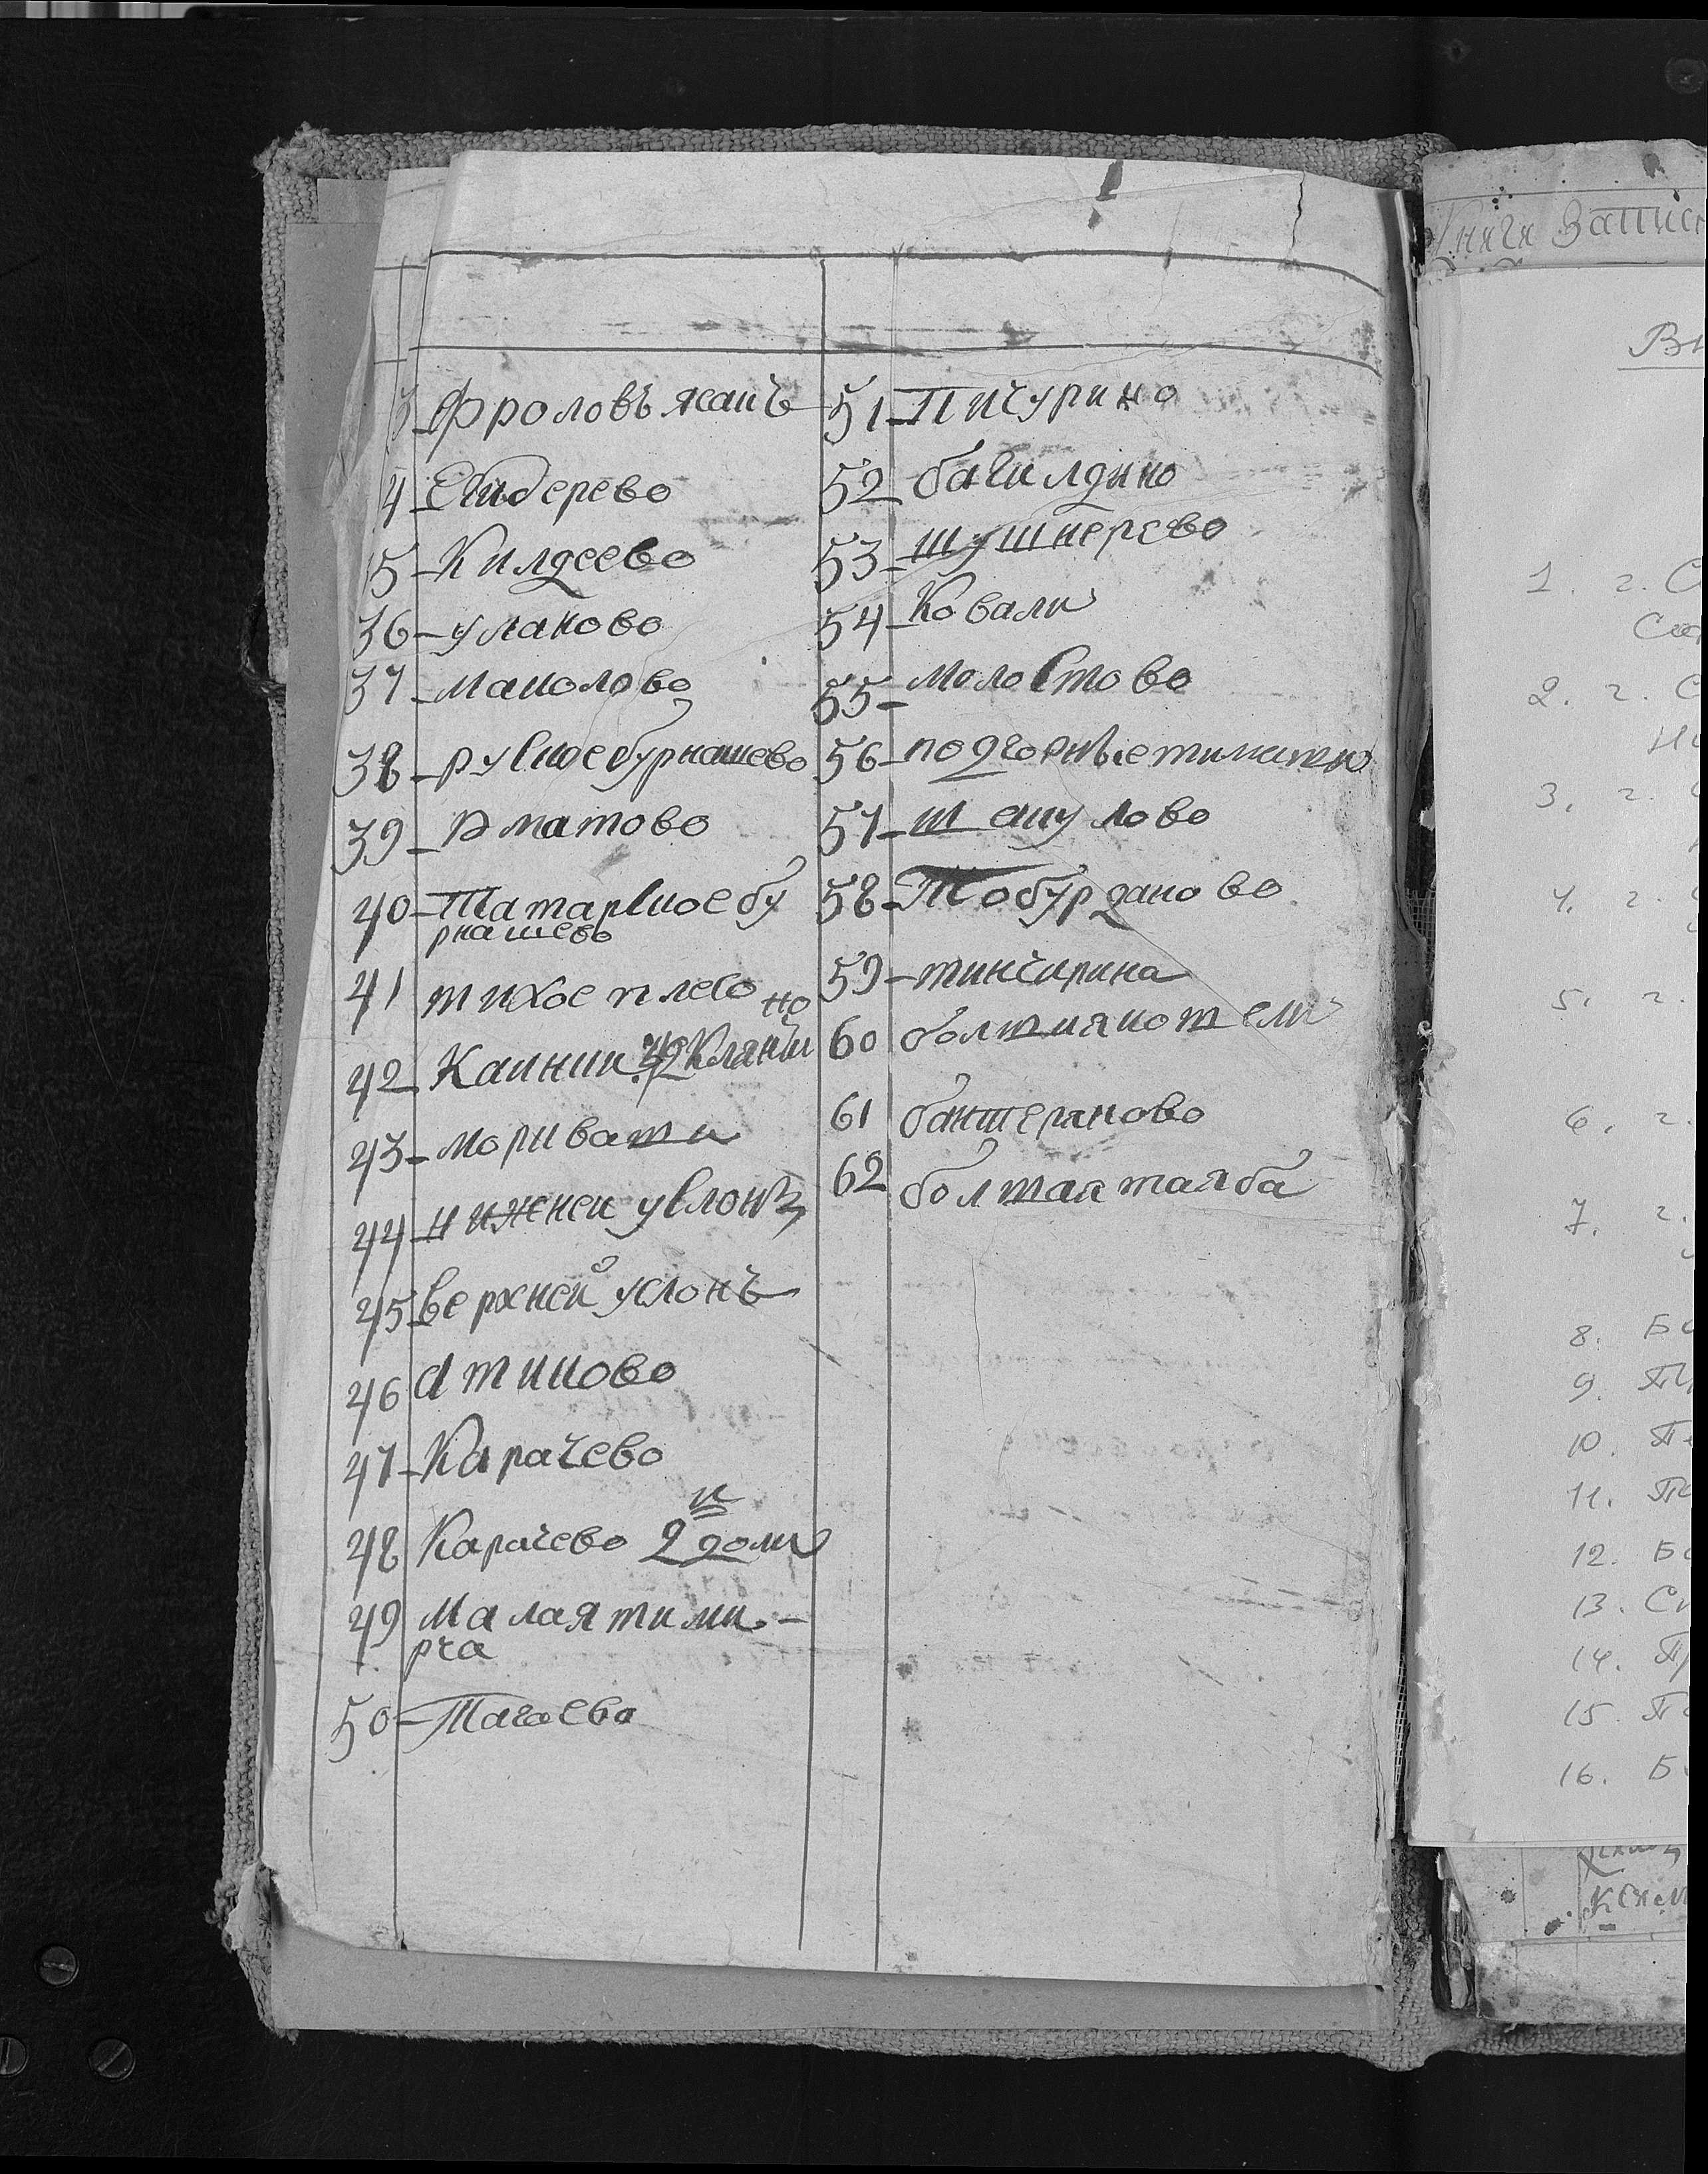 3 Фроловъ яжанъ
4 Егидерево
5 Килдеево
36 улаково
37 маколово
38 рускоебурнашево
39 Яматово
40 Татарскоебу
рнашево
41 тихое плесо
но
42 Каинки 42 Клянчи
43 морква ти
44 нижнеи услонъ
45 верхней услонъ
46 атиково
47 Карачево
48 Карачево 2й доли
49 Малая тими-
рча
50 Тагаево
51 Пичурино
52 багилдино
53 шушнерево
54 Ковали
55 молоствово
56 подгорные тимаши
57 ш акулово
58 Тобурданово
59 тинсарина
60 болшияютели
61 баишераново
62 болшаятаяба
Книги Записи
1. г. С
2. г. С
3. г.
4. г.
5. г.
6. г.
7. г.
8. Б
9. П
10. П
11. П
12. Б
13. С
14. П
15. П
16. Б